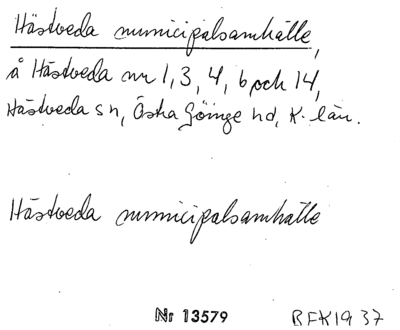 Hästveda municipalsamhälle,
å Hästveda nr 1, 3, 4, 6 och 14,
Hästveda sn, Östra Göinge hd, K. län.
Hästveda municipalsamhälle
Nr 13579 BFK1937